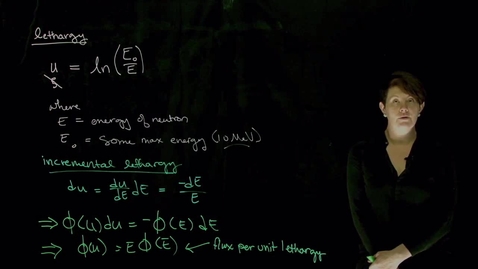 lethargy
u = ln(E₀/E)
where
E = energy of neutron
E₀ = some max energy (10 MeV)
incremental lethargy
du = du/dE dE = -dE/E
⇒ ϕ(u)du = -ϕ(E)dE
⇒ ϕ(u) = Eϕ(E) ← flux per unit lethargy